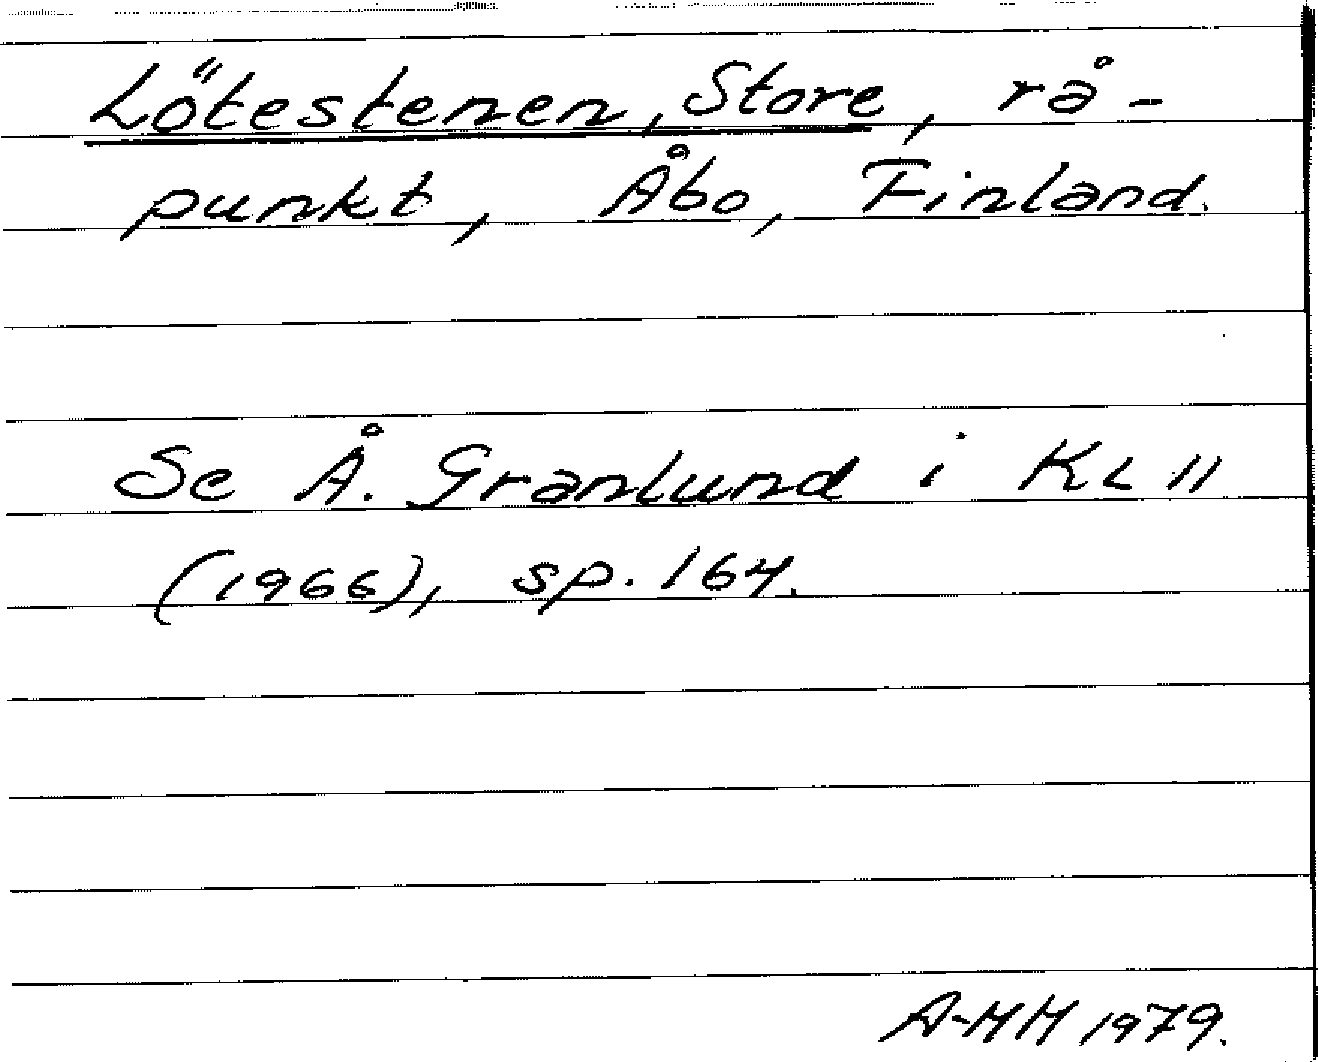 Lötestenen, Store, rå-
punkt, Åbo, Finland.
Se Å. Granlund i KL 11
(1966), sp. 164.
A-MH 1979.